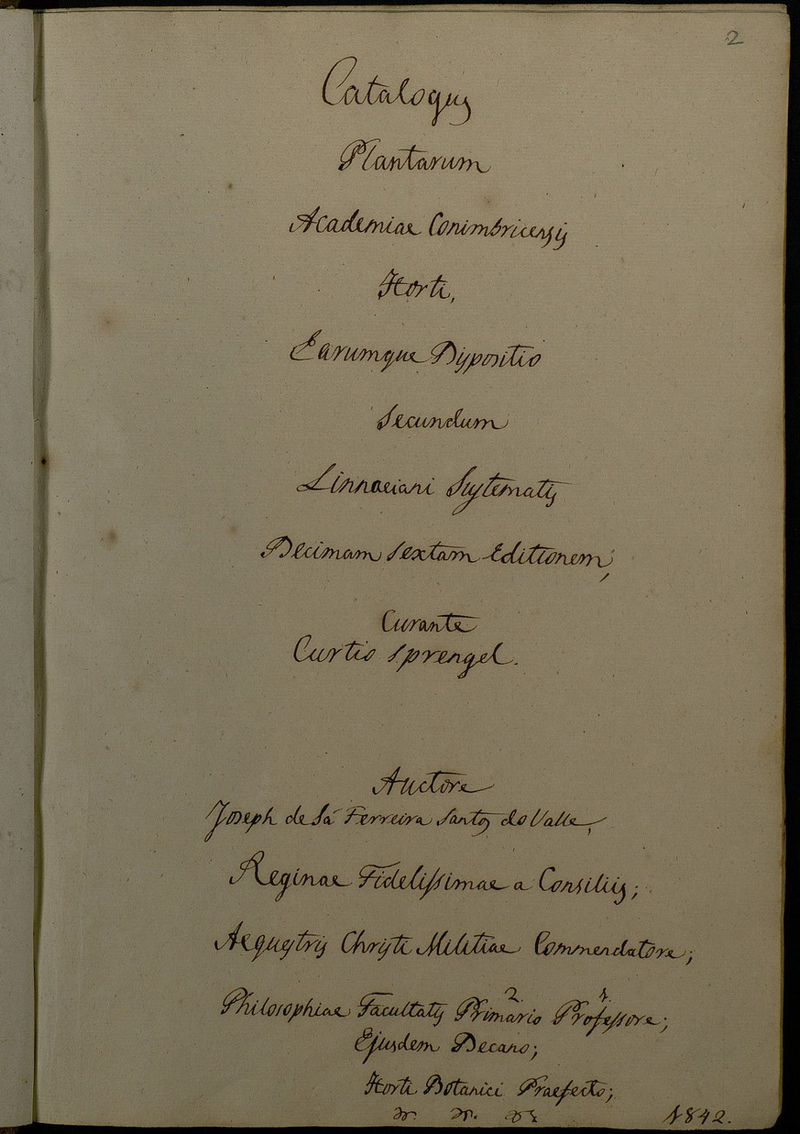 2
Catalogus
Plantarum
Academiae Conimbricensis
Horti,
Earumque Dispositio
Secundum
Linnaeiani Systematis
Decimam sextam Editionem,
Curante
Curtio Sprengel.
Auctore
Joseph de Sá Ferreira Santos do Valle,
Reginae Fidelissimae a Consiliis;
Aequestris Christi Militiae Commendatore;
2. 1.
Philosophiae Facultatis Primario Professore;
Ejusdem Decano;
Horti Botanici Praefecto;
1842.